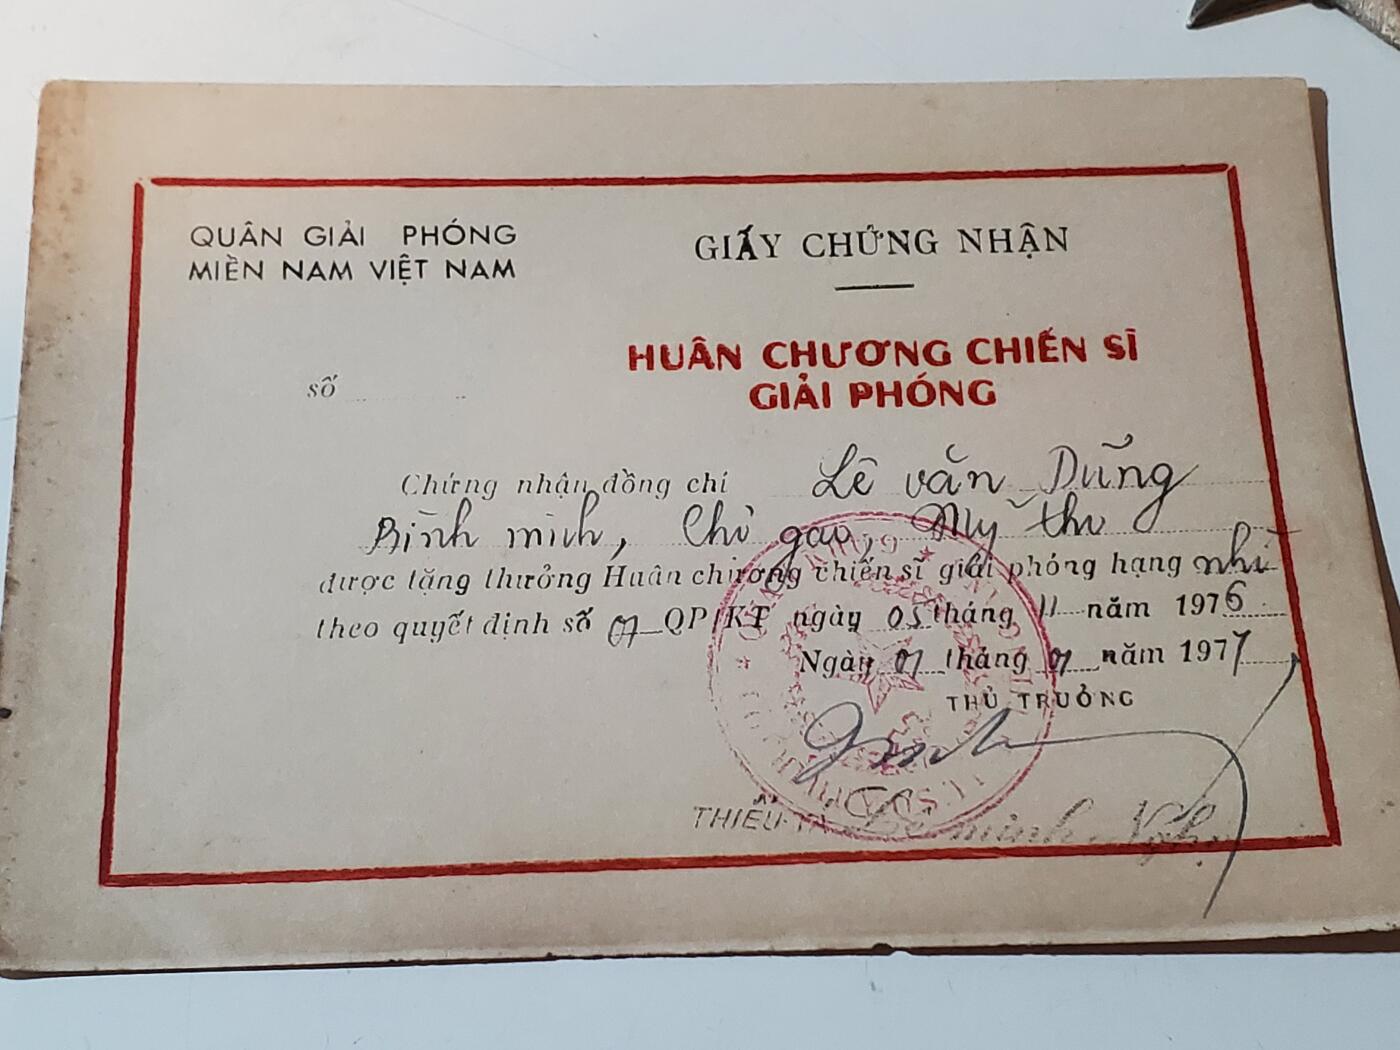 QUÂN GIẢI PHÓNG
MIỀN NAM VIỆT NAM
GIẤY CHỨNG NHẬN
số
HUÂN CHƯƠNG CHIẾN SĨ
GIẢI PHÓNG
Chứng nhận đồng chí Lê văn Dũng
Bình minh, Chợ gạo, Mỹ tho
được tặng thưởng Huân chương chiến sĩ giải phóng hạng nhì
theo quyết định số 07 QP/KT ngày 05 tháng 11 năm 1976
Ngày 07 tháng 07 năm 1977
THỦ TRƯỞNG
THIẾU TÁ Lê minh